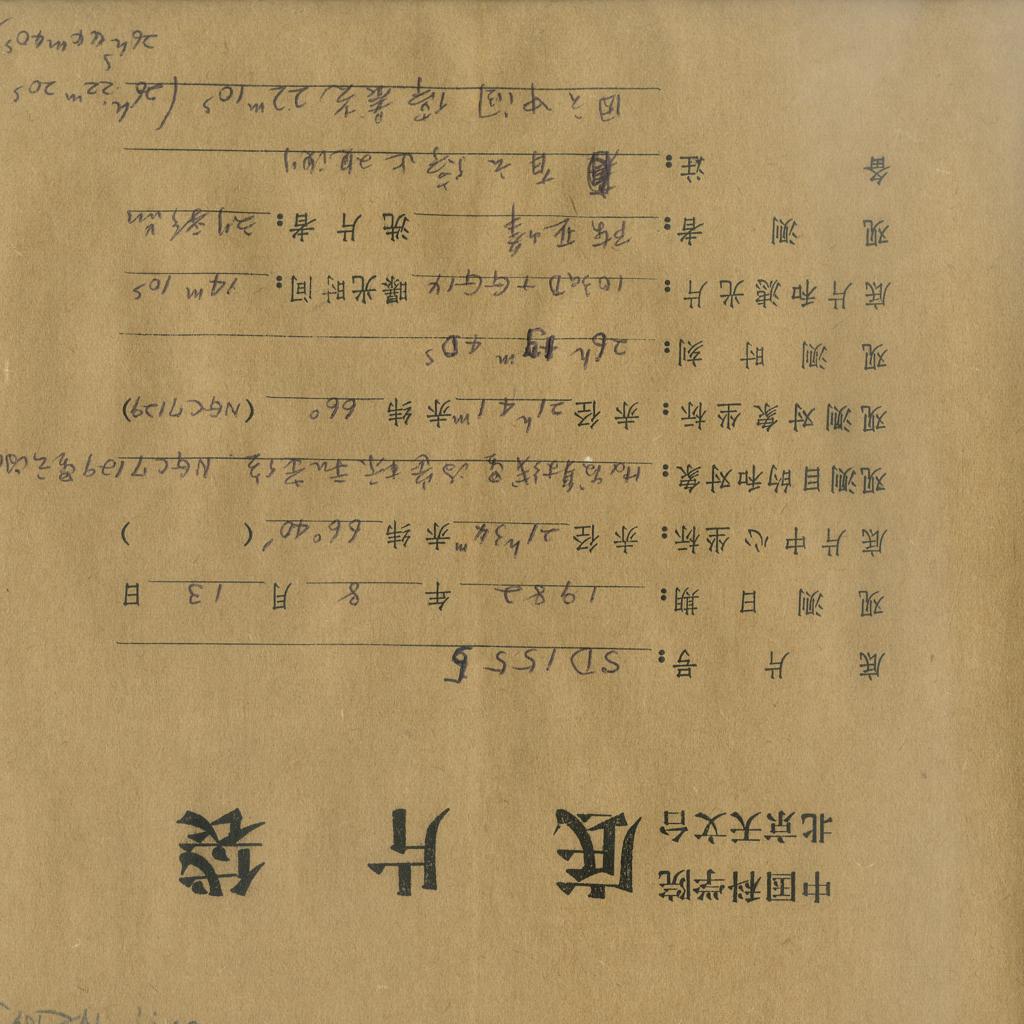 中国科学院
北京天文台
底片袋
底片号: SD1555
观测日期: 1982年8月13日
底片中心坐标: 赤径21h34m赤纬66°40′ ( )
观测目的和对象: Hα发射线星 NGC7129
观测对象坐标: 赤径21h41m赤纬66° (NGC7129)
观测时刻: 26h 19m 40s
底片和滤光片: 103aD+GG14 曝光时间: 14m10s
观测者: 陈亚峰 洗片者:
备注: 有云停止观测
因云中间停露光22m10s (26h22m20s
26h44m40s